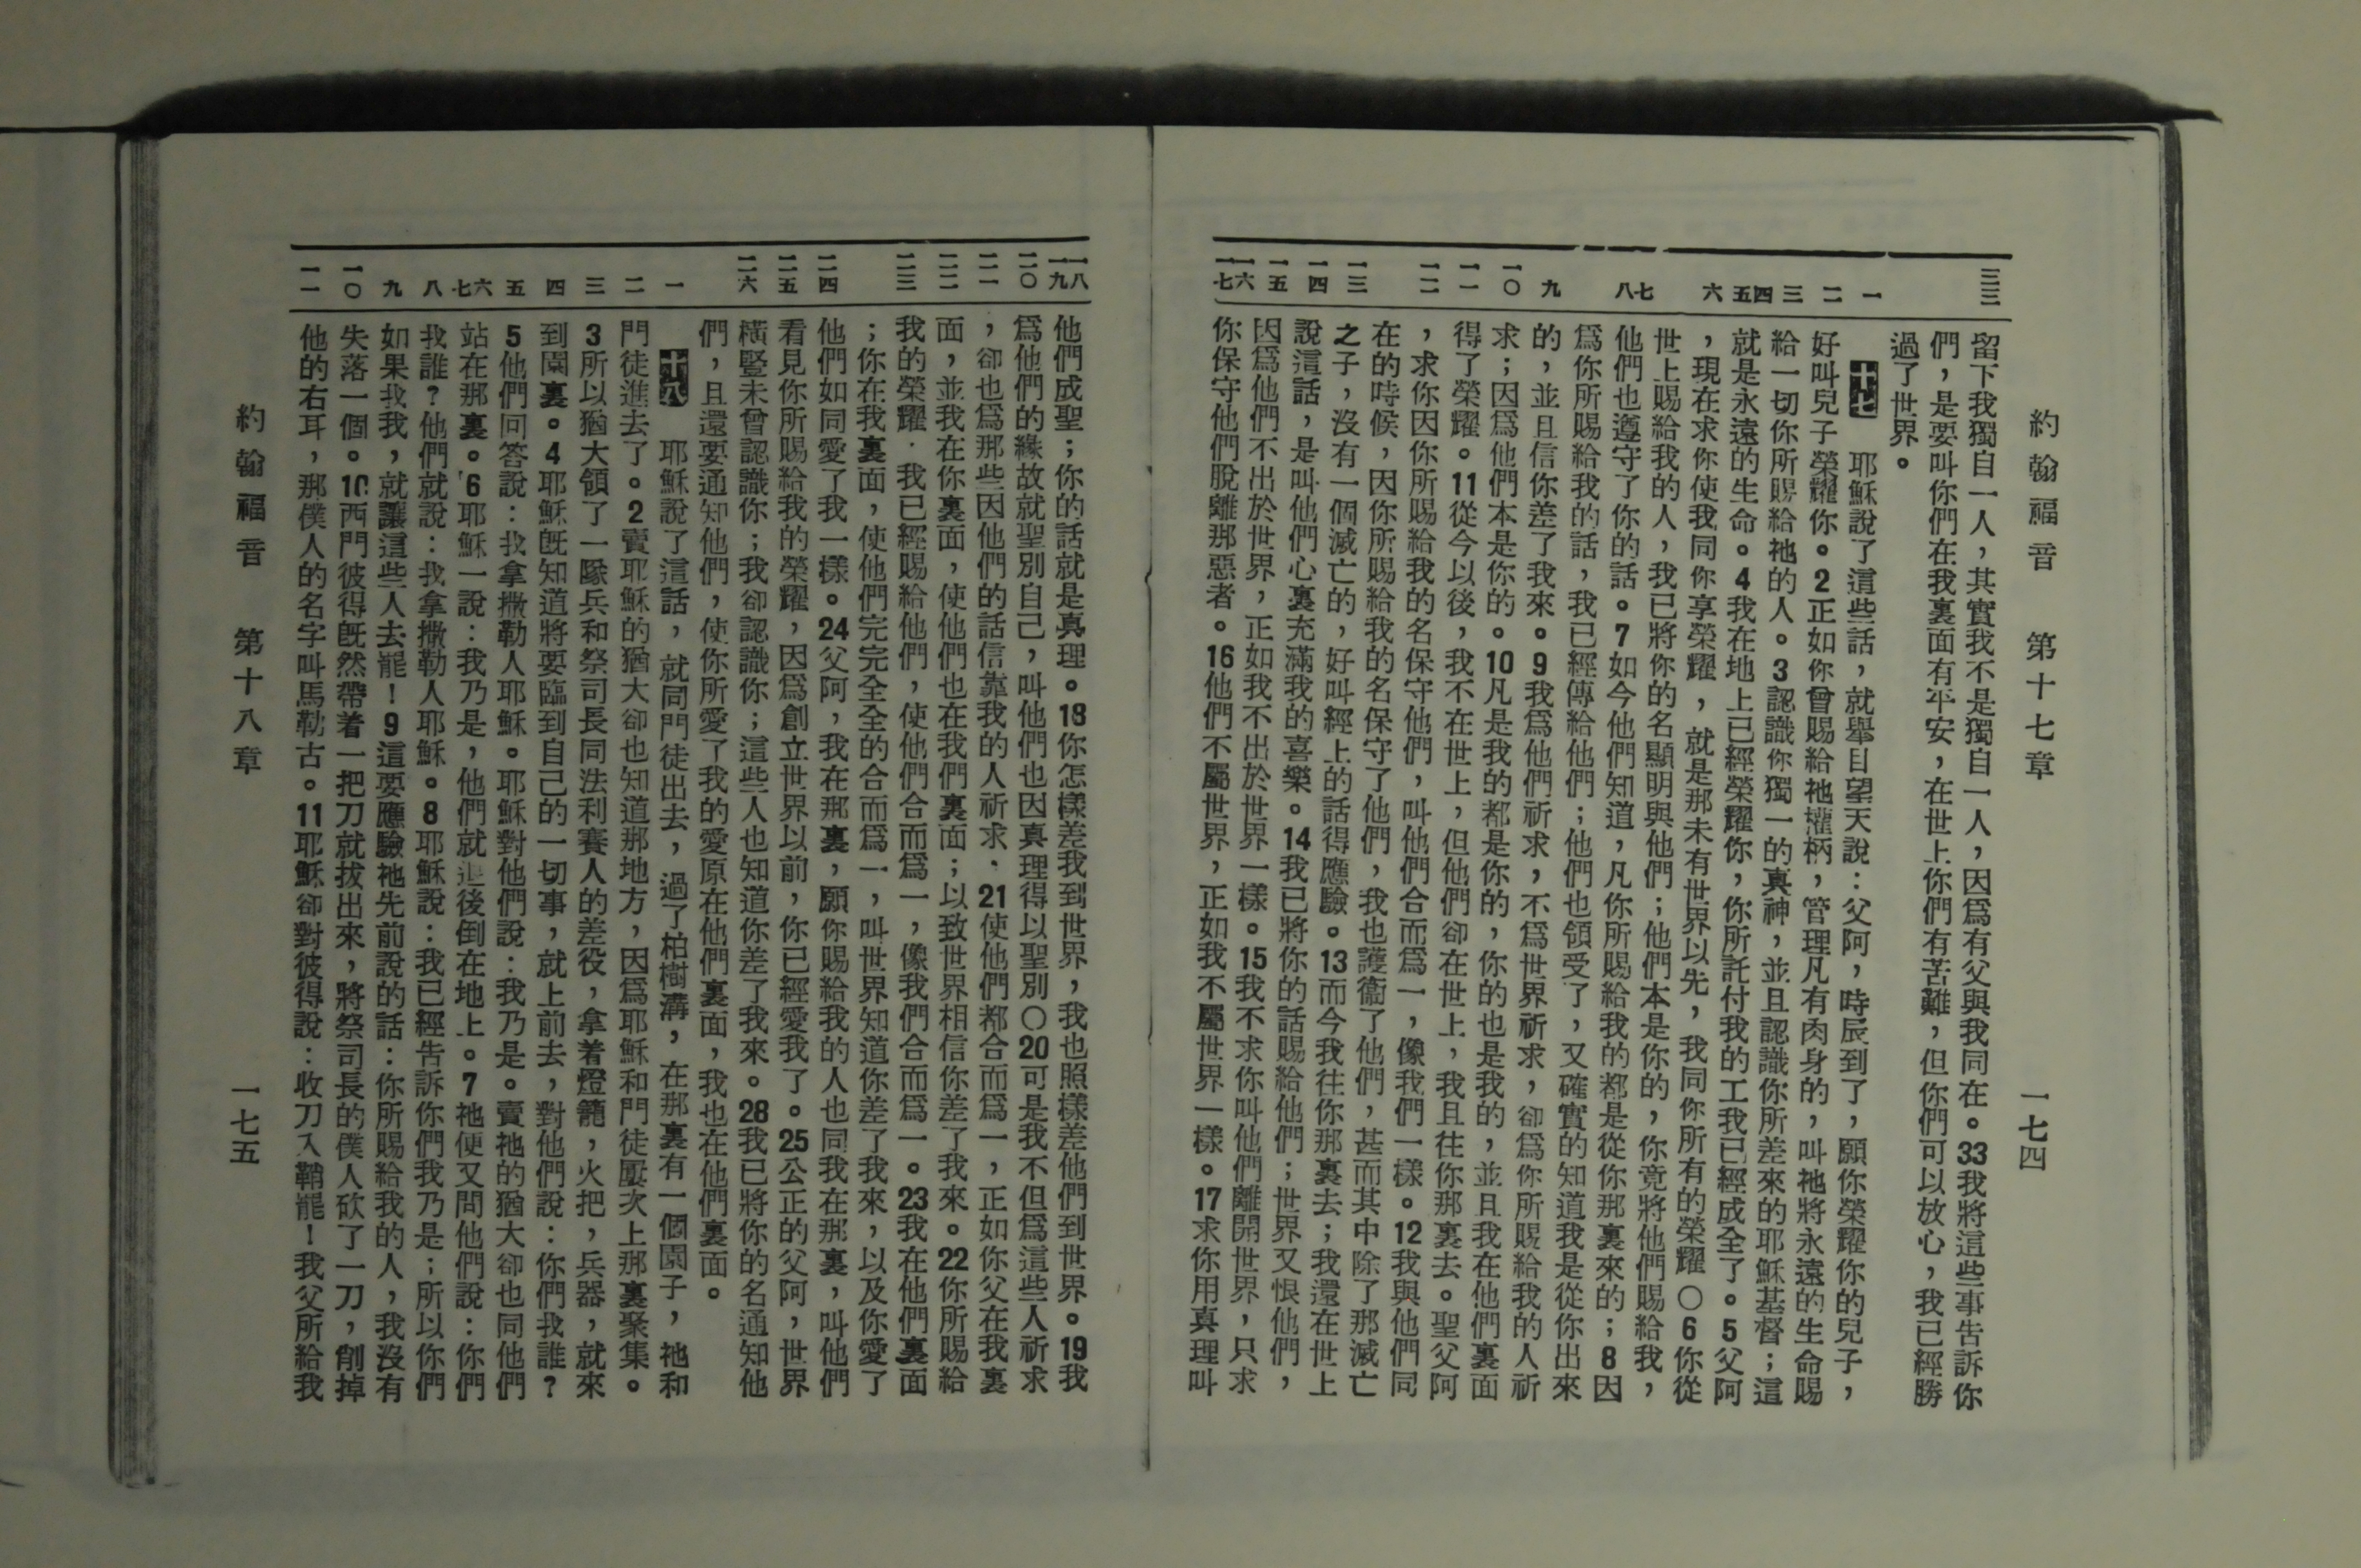 約翰福音　第十七章　一七四
三三
一
二
三
四
五
六
七
八
九
一〇
一一
一二
一三
一四
一五
一六
一七
留下我獨自一人，其實我不是獨自一人，因爲有父與我同在。33我將這些事告訴你
們，是要叫你們在我裏面有平安，在世上你們有苦難，但你們可以放心，我已經勝
過了世界。
十七　耶穌說了這些話，就舉目望天說：父阿，時辰到了，願你榮耀你的兒子，
好叫兒子榮耀你。2正如你曾賜給祂權柄，管理凡有肉身的，叫祂將永遠的生命賜
給一切你所賜給祂的人。3認識你獨一的真神，並且認識你所差來的耶穌基督；這
就是永遠的生命。4我在地上已經榮耀你，你所託付我的工我已經成全了。5父阿
，現在求你使我同你享榮耀，就是那未有世界以先，我同你所有的榮耀〇6你從
世上賜給我的人，我已將你的名顯明與他們；他們本是你的，你竟將他們賜給我，
他們也遵守了你的話。7如今他們知道，凡你所賜給我的都是從你那裏來的；8因
爲你所賜給我的話，我已經傳給他們；他們也領受了，又確實的知道我是從你出來
的，並且信你差了我來。9我爲他們祈求，不爲世界祈求，卻爲你所賜給我的人祈
求；因爲他們本是你的。10凡是我的都是你的，你的也是我的，並且我在他們裏面
得了榮耀。11從今以後，我不在世上，但他們卻在世上，我且往你那裏去。聖父阿
，求你因你所賜給我的名保守他們，叫他們合而爲一，像我們一樣。12我與他們同
在的時候，因你所賜給我的名保守了他們，我也護衞了他們，甚而其中除了那滅亡
之子，沒有一個滅亡的，好叫經上的話得應驗。13而今我往你那裏去；我還在世上
說這話，是叫他們心裏充滿我的喜樂。14我已將你的話賜給他們；世界又恨他們，
因爲他們不出於世界，正如我不出於世界一樣。15我不求你叫他們離開世界，只求
你保守他們脫離那惡者。16他們不屬世界，正如我不屬世界一樣。17求你用真理叫
一八
一九
二〇
二一
二二
二三
二四
二五
二六
一
二
三
四
五
六
七
八
九
一〇
一一
他們成聖；你的話就是真理。18你怎樣差我到世界，我也照樣差他們到世界。19我
爲他們的緣故就聖別自己，叫他們也因真理得以聖別〇20可是我不但爲這些人祈求
，卻也爲那些因他們的話信靠我的人祈求，21使他們都合而爲一，正如你父在我裏
面，並我在你裏面，使他們也在我們裏面；以致世界相信你差了我來。22你所賜給
我的榮耀．我已經賜給他們，使他們合而爲一，像我們合而爲一。23我在他們裏面
；你在我裏面，使他們完完全全的合而爲一，叫世界知道你差了我來，以及你愛了
他們如同愛了我一樣。24父阿，我在那裏，願你賜給我的人也同我在那裏，叫他們
看見你所賜給我的榮耀，因爲創立世界以前，你已經愛我了。25公正的父阿，世界
橫豎未曾認識你；我卻認識你；這些人也知道你差了我來。26我已將你的名通知他
們，且還要通知他們，使你所愛了我的愛原在他們裏面，我也在他們裏面。
十八　耶穌說了這話，就同門徒出去，過了柏樹溝，在那裏有一個園子，祂和
門徒進去了。2賣耶穌的猶大卻也知道那地方，因爲耶穌和門徒屢次上那裏聚集。
3所以猶大領了一隊兵和祭司長同法利賽人的差役，拿着燈籠，火把，兵器，就來
到園裏。4耶穌既知道將要臨到自己的一切事，就上前去，對他們說：你們找誰？
5他們回答說：找拿撒勒人耶穌。耶穌對他們說：我乃是。賣祂的猶大卻也同他們
站在那裏。6耶穌一說：我乃是，他們就退後倒在地上。7祂便又問他們說：你們
找誰？他們就說：找拿撒勒人耶穌。8耶穌說：我已經告訴你們我乃是；所以你們
如果找我，就讓這些人去罷！9這要應驗祂先前說的話：你所賜給我的人，我沒有
失落一個。10西門彼得既然帶着一把刀就拔出來，將祭司長的僕人砍了一刀，削掉
他的右耳，那僕人的名字叫馬勒古。11耶穌卻對彼得說：收刀入鞘罷！我父所給我
約翰福音　第十八章　一七五